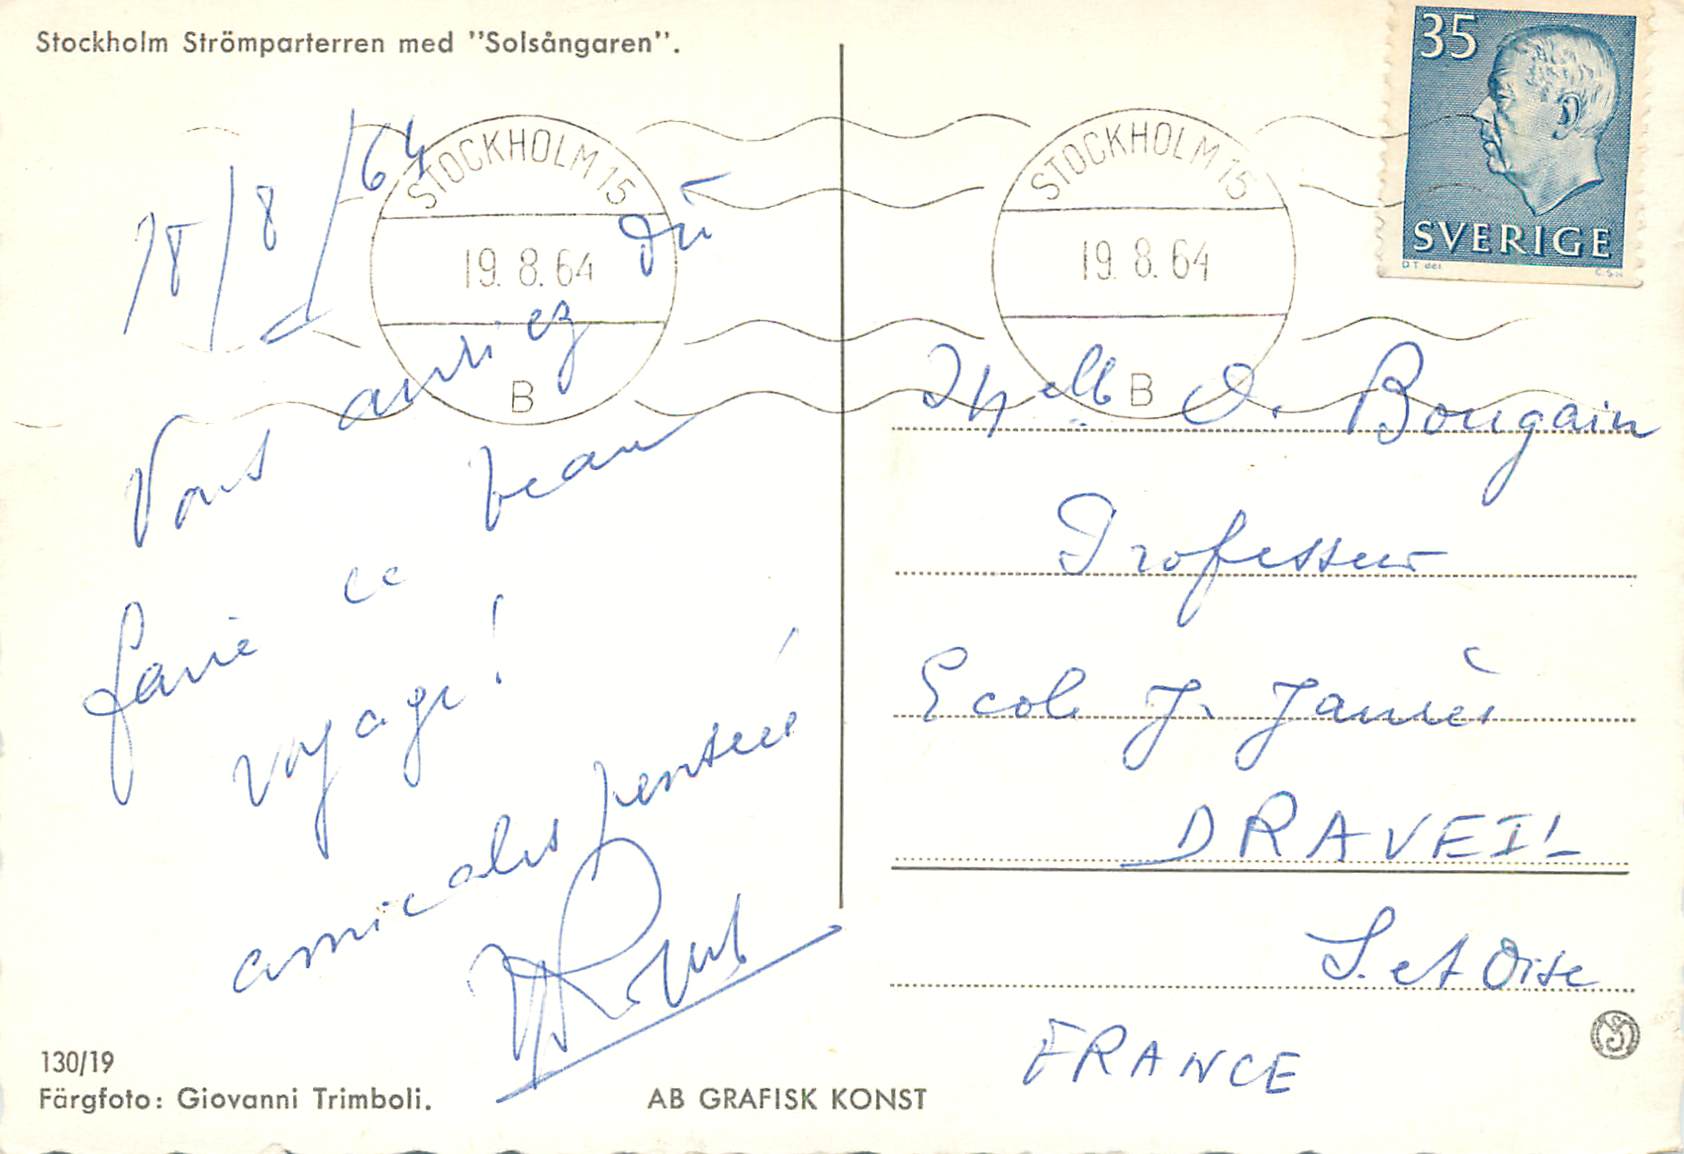 Stockholm Strömparterren med "Solsångaren".
35
SVERIGE
STOCKHOLM 15
19.8.64
B
STOCKHOLM 15
19.8.64
B
18/8/64
Vous auriez dû
faire ce beau
voyage!
amicales pensées
Melle O. Bougain
Professeur
Ecole J. Jaurès
DRAVEIL
S. et Oise
FRANCE
130/19
Färgfoto: Giovanni Trimboli.
AB GRAFISK KONST